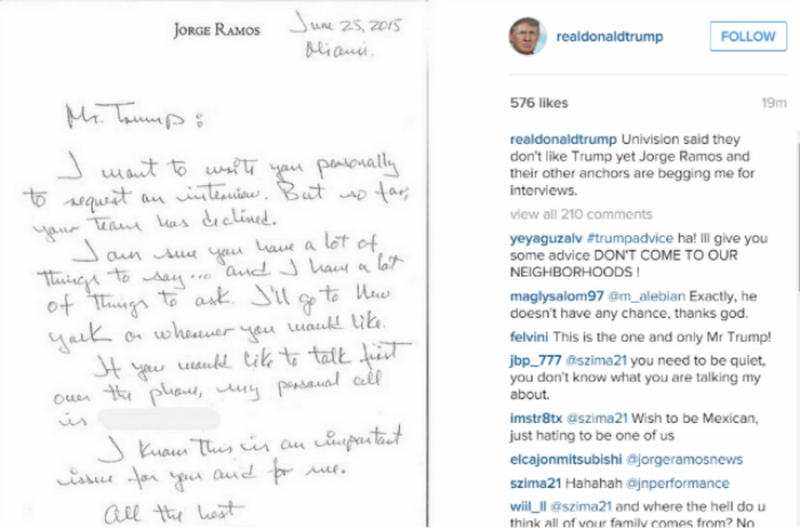 JORGE RAMOS
June 25, 2015
Miami.
Mr. Trump:
I want to write you personally
to request an interview. But so far,
your team has declined.
I am sure you have a lot of
things to say... and I have a lot
of things to ask. I'll go to New
York or wherever you would like.
If you would like to talk first
over the phone, my personal cell
is
I know this is an important
issue for you and for me.
All the best
realdonaldtrump
FOLLOW
576 likes
19m
realdonaldtrump Univision said they
don't like Trump yet Jorge Ramos and
their other anchors are begging me for
interviews.
view all 210 comments
yeyaguzalv #trumpadvice ha! Ill give you
some advice DON'T COME TO OUR
NEIGHBORHOODS !
maglysalom97 @m_alebian Exactly, he
doesn't have any chance, thanks god.
felvini This is the one and only Mr Trump!
jbp_777 @szima21 you need to be quiet,
you don't know what you are talking my
about.
imstr8tx @szima21 Wish to be Mexican,
just hating to be one of us
elcajonmitsubishi @jorgeramosnews
szima21 Hahahah @jnperformance
wiil_ll @szima21 and where the hell do u
think all of your family comes from? No